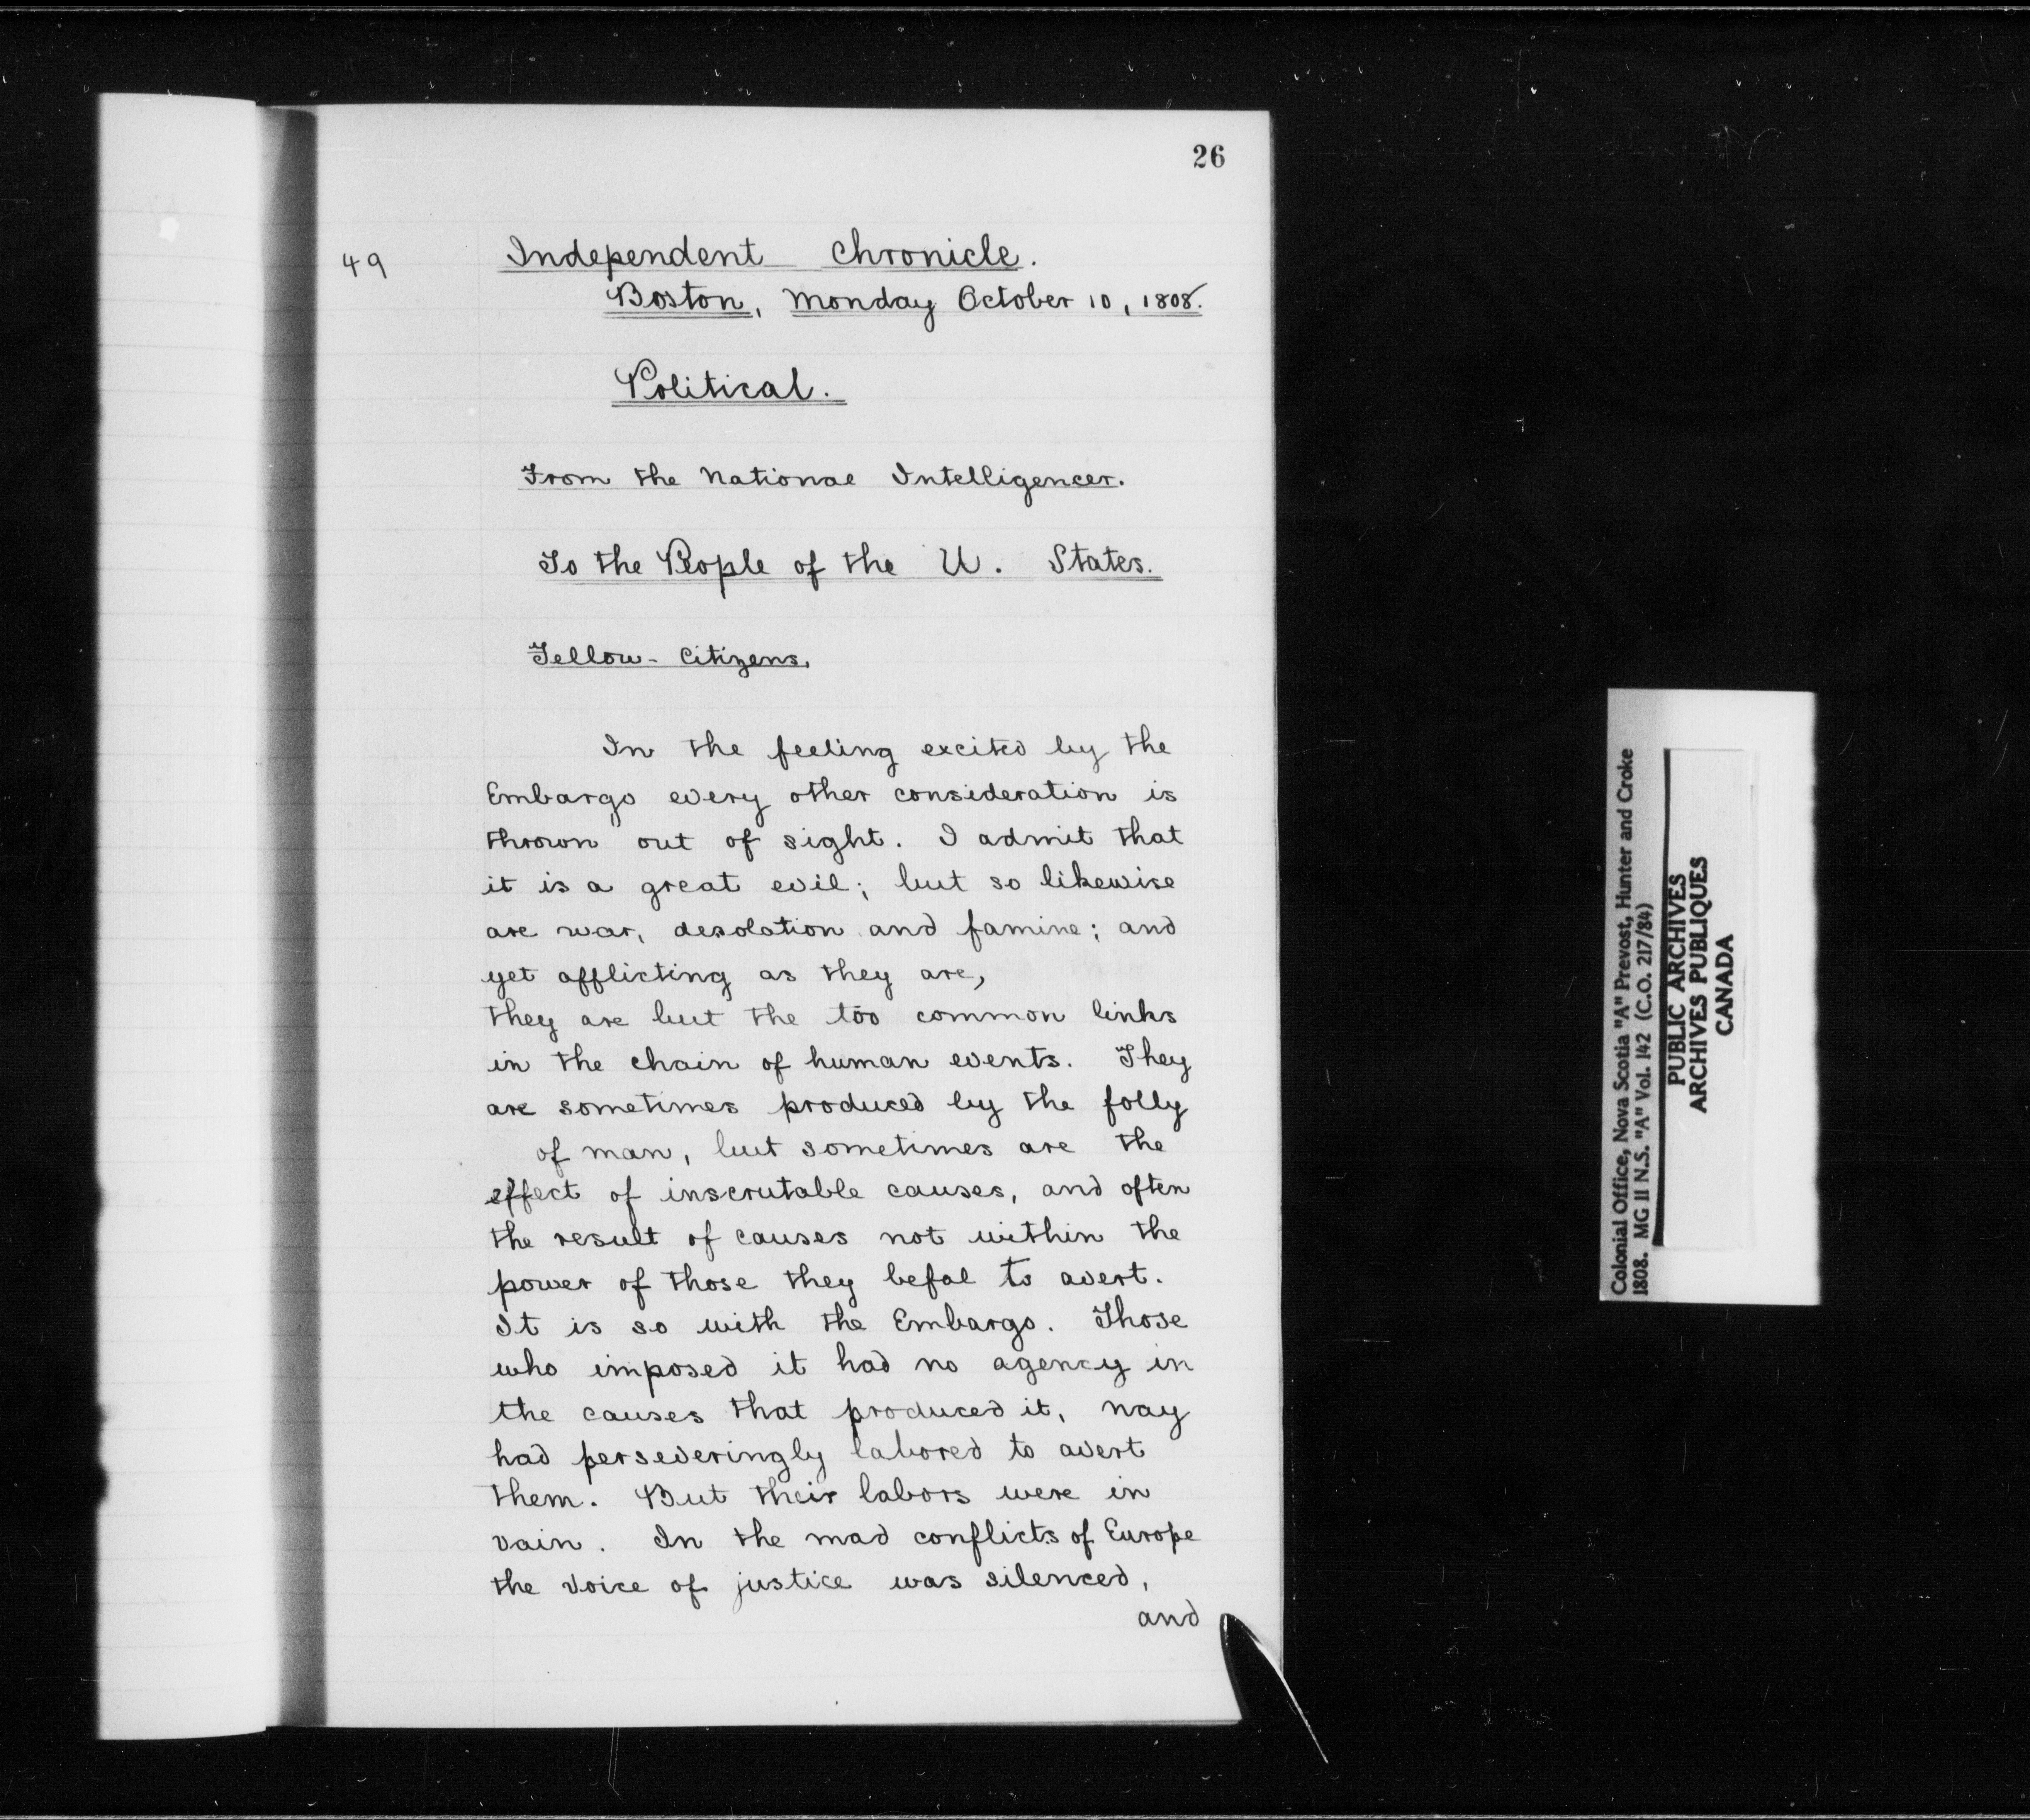 26
49
Independent Chronicle.
Boston, Monday October 10, 1808.
Political.
From the National Intelligencer.
To the People of the U. States.
Fellow-Citizens,
In the feeling excited by the
Embargo every other consideration is
thrown out of sight. I admit that
it is a great evil; but so likewise
are war, desolation and famine; and
yet afflicting as they are,
they are but the too common links
in the chain of human events. They
are sometimes produced by the folly
of man, but sometimes are the
effect of inscrutable causes, and often
the result of causes not within the
power of those they befal to avert.
It is so with the Embargo. Those
who imposed it had no agency in
the causes that produced it, nay
had perseveringly labored to avert
them. But their labors were in
vain. In the mad conflicts of Europe
the voice of justice was silenced,
and
Colonial Office, Nova Scotia "A" Prevost, Hunter and Croke
1808. MG 11 N.S. "A" Vol. 142 (C.O. 217/84)
PUBLIC ARCHIVES
ARCHIVES PUBLIQUES
CANADA